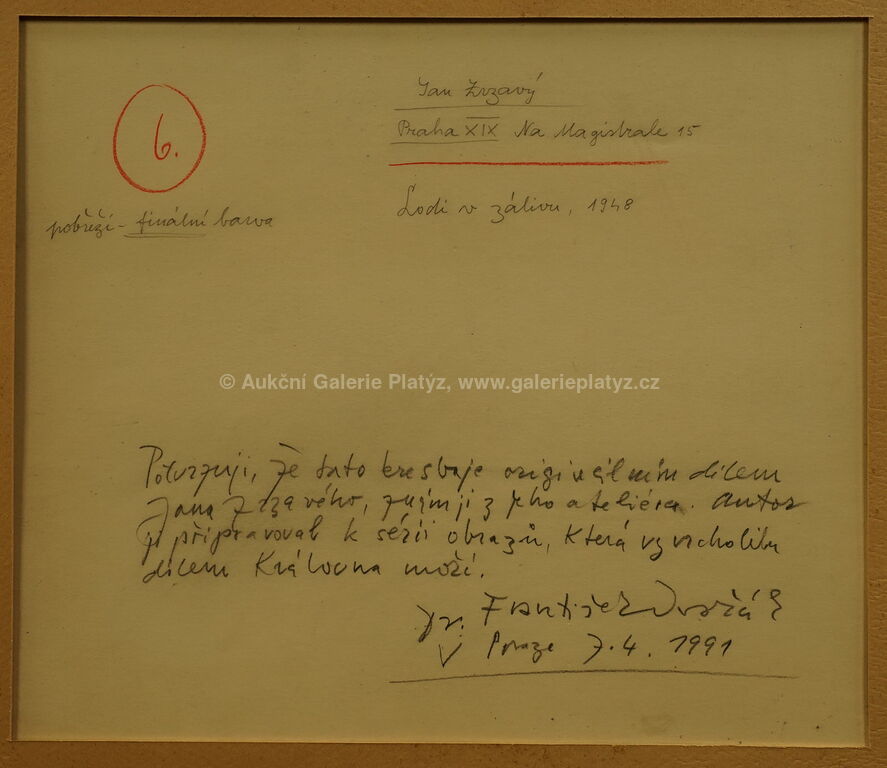 6.
Jan Zrzavý
Praha XIX Na Magistrale 15
Lodi v zálivu, 1948
pobřeží - finální barva
© Aukční Galerie Platýz, www.galerieplatyz.cz
Potvrzuji, že tato kresba je originálním dílem
Jana Zrzavého, znám ji z jeho ateliéru. Autor
ji připravoval k sérii obrazů, která vyvrcholila
dílem Královna moží.
Dr. František Dvořák
V Praze 7.4.1991